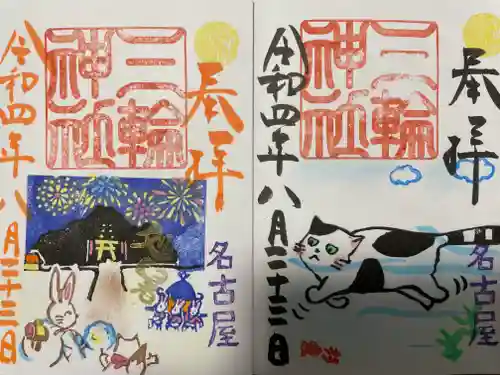 奉拝
三輪神社
令和四年八月二十三日
名古屋
奉拝
三輪神社
令和四年八月二十三日
名古屋